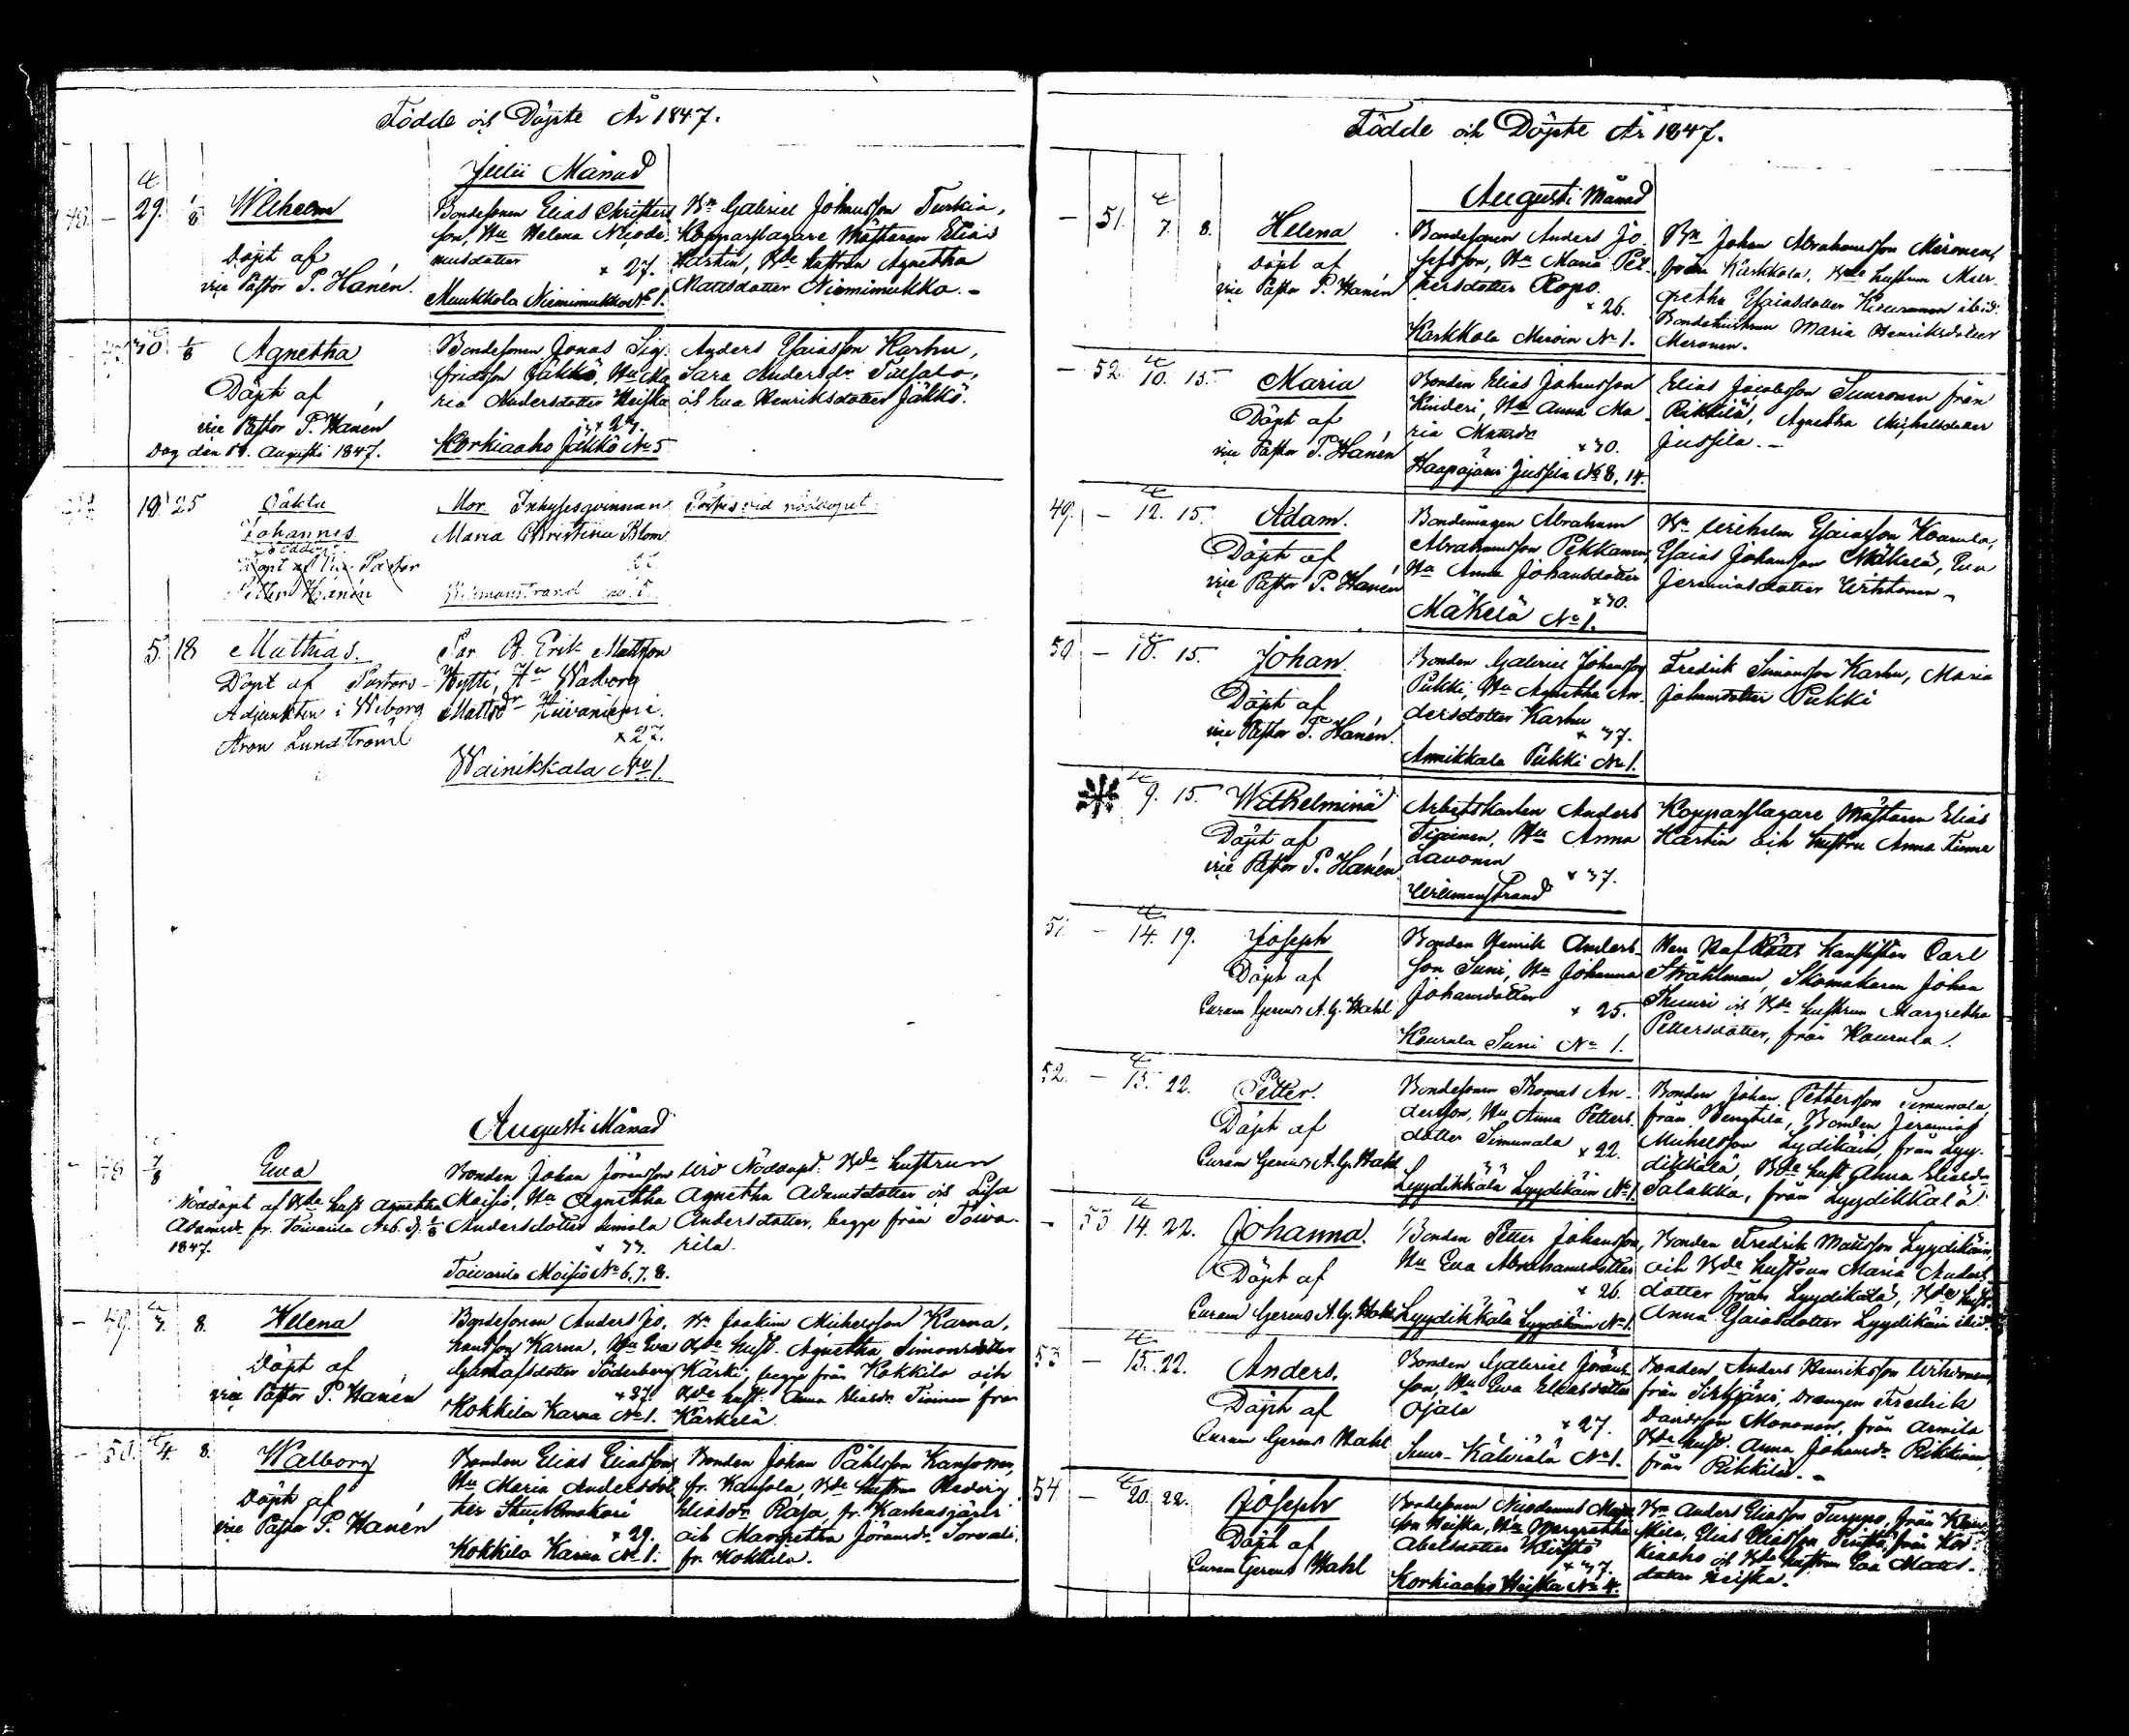 Födde och Döpte År 1847.
Julii Månad
48. — 29. 1/8 Wilhelm
Döpt af
vice Pastor P. Hanén.
Bondesonen Elias Christers
son, Hu Helena Nicode-
musdotter
× 27.
Muukkola Niemimukko No 1.
Bn Gabriel Johansson Turkia,
Kopparslagare Mästaren Elias
Hartin, Bde hustrun Agnetha
Mattsdotter Niemimukko. —
30 1/8 Agnetha
Döpt af
vice Pastor P. Hanén
Dag den 1. Augusti 1847.
Bondesonen Jonas Sig-
fridsson Jäkkö, Hu Ma
ria Andersdotter Heiska
× 27.
Korkiaaho Jäkkö No 5
Anders Esaiasson Karhu,
Sara Andersdr
och Eva Henriksdotter Jäkkö.
18 25 Oäkta
Johannes
Döpt af Vice Pastor
Petter Hanén
Mor. Inhysesqvinnan
Maria Christina Blom
Wilmanstrand
vid nöddopet.
5. 18 Mathias.
Döpt af Pastors-
Adjunkten i Wiborg
Aron Lundström
Par. B. Erik Mattsson
Hytti, Hu Walborg
Mattsdr Hiivaniemi.
× 27.
Wainikkala No 1.
Augusti Månad
— 48 1/8 Ewa
Nöddöpt af Bde hust Agnetha
Adamsdr fr. Toivarila
1847.
Bonden Johan Jöransson
Moisio, Hu Agnetha
Andersdotter Simola
× 33.
Toivarila Moisio No 6. 7. 8.
Wid Nöddopt. Bde hustrun
Agnetha Adamsdotter och Lisa
Andersdotter, begge från Toiva-
rila.
— 49. 3. 8. Helena
Döpt af
vice Pastor P. Hanén
Bondesonen Anders Jo-
hansson Karna, Hu Eva
Gustafsdotter Söderberg
× 27.
Kokkila Karna No 1.
Bn Joakim Michelsson Karna,
Bde hust. Agnetha Simonsdotter
Kärki, begge från Kokkila och
Bde hust. Anna Eliasdr Tiainen från
Kärkelä
— 50. 4. 8. Walborg
Döpt af
vice Pastor P. Hanén
Bonden Elias Eliasson
Hu Maria Andersdot
ter
× 29.
Kokkila Karna No 1.
Bonden Johan Påhlsson Kansonen,
fr. Kansola, Bde hustrun Hedvig
Eliasdr Rasa, fr. Karhusjärvi
och Margretha Jöransdr Torvali
fr. Kokkila.
Födde och Döpte År 1847.
Augusti Månad
— 51. 7. 8. Helena
Döpt af
vice Pastor P. Hanén
Bondesonen Anders Jo-
sefsson, Hu Maria Pet-
tersdotter Ropo.
× 26.
Karkkola Meroin No 1.
Bn Johan Abrahamsson Meronen,
från Karkkola, Bde hustrun Mar-
gretha Esaiasdotter ibid.
Bondehustrun Maria Henriksdotter
Meronen.
— 52. 10. 15. Maria
Döpt af
vice Pastor P. Hanén
Bonden Elias Johansson
Kinderi, Hu Anna Ma-
ria
× 30.
Haapajärvi Jussila No 8, 14.
Elias Jacobsson Suuronen från
Rikkilä, Agnetha Michelsdotter
Jussila. —
49. — 12. 15. Adam.
Döpt af
vice Pastor P. Hanén
Bondemågen Abraham
Abrahamsson Pekkanen,
Hu Anna Johansdotter
× 30.
Mäkelä No 1.
Bn Wilhelm Esaiasson Kourula,
Esaias Johansson Mäkelä, Eva
Jeremiasdotter
50. — 10. 15. Johan.
Döpt af
vice Pastor P. Hanén.
Bonden Gabriel Johansson
Pukki, Hu Agnetha An-
dersdotter Karhu
× 37.
Annikkala Pukki No 1.
Fredrik Simonsson Karhu, Maria
Johansdotter Pukki
9. 15. Wilhelmina
Döpt af
vice Pastor P. Hanén.
Arbetskarlen Anders
Tiainen, Hu Anna
Lavonen
× 37.
Wilmanstrand
Kopparslagare Mästaren Elias
Hartin och hustru Anna
51 — 14. 19. Joseph
Döpt af
Curam Gerens A. G. Wahl
Bonden Henrik Anders-
son Suni, Hu Johanna
Johansdotter
× 25.
Kourula Suni No 1.
Herr Hof Rätts Kanslisten Carl
Stråhlman, Skomakaren Johan
Thuuri och Bde hustrun Margretha
Pettersdotter, från Kourula.
52. — 15. 22. Petter.
Döpt af
Curam Gerens A. G. Wahl
Bondesonen Thomas An-
dersson, Hu Anna Petters-
dotter Simunala
× 22.
Lyydikkälä Lyydikäin No 1.
Bonden Johan Pettersson Simunala
från Pengtilä, Bonden Jeremias
Michelsson Lydikäin, från Lyy-
dikkälä, Bde hust Anna Eliasdr
Salakka, från Lyydikkälä.
— 53 14. 22. Johanna.
Döpt af
Curam Gerens A. G. Wahl
Bonden Petter Johansson,
Hu Eva Abrahamsdotter
× 26.
Lyydikkälä Lyydikäin No 1.
Bonden Fredrik Mattsson Lyydikäin,
och Bde hustrun Maria Anders-
dotter från Lyydikälä, Bde hust.
Anna Esaiasdotter Lyydikäin ibid.
53 — 15. 22. Anders.
Döpt af
Curam Gerens Wahl
Bonden Gabriel Jörans-
son, Hu Ewa Eliasdotter
Ojala
× 27.
Suur-Kälviälä No 1.
Bonden Anders Henriksson
från Sirkjärvi, Drängen Fredrik
Davidsson Mononen, från Armila
Bde hust. Anna Johansdr Rikkinen,
från Rikkilä. —
54 — 20. 22. Joseph
Döpt af
Curam Gerens Wahl
Bondesonen Nicodemus
son Heiska, Hu Margretha
Abelsdotter
× 37.
Korkiaaho Heiska No 4.
Bn Anders Eliasson Turppo, från
Elias Eliasson från Kor-
kiaaho och Bde hustrun Eva Matts-
dotter Heiska.